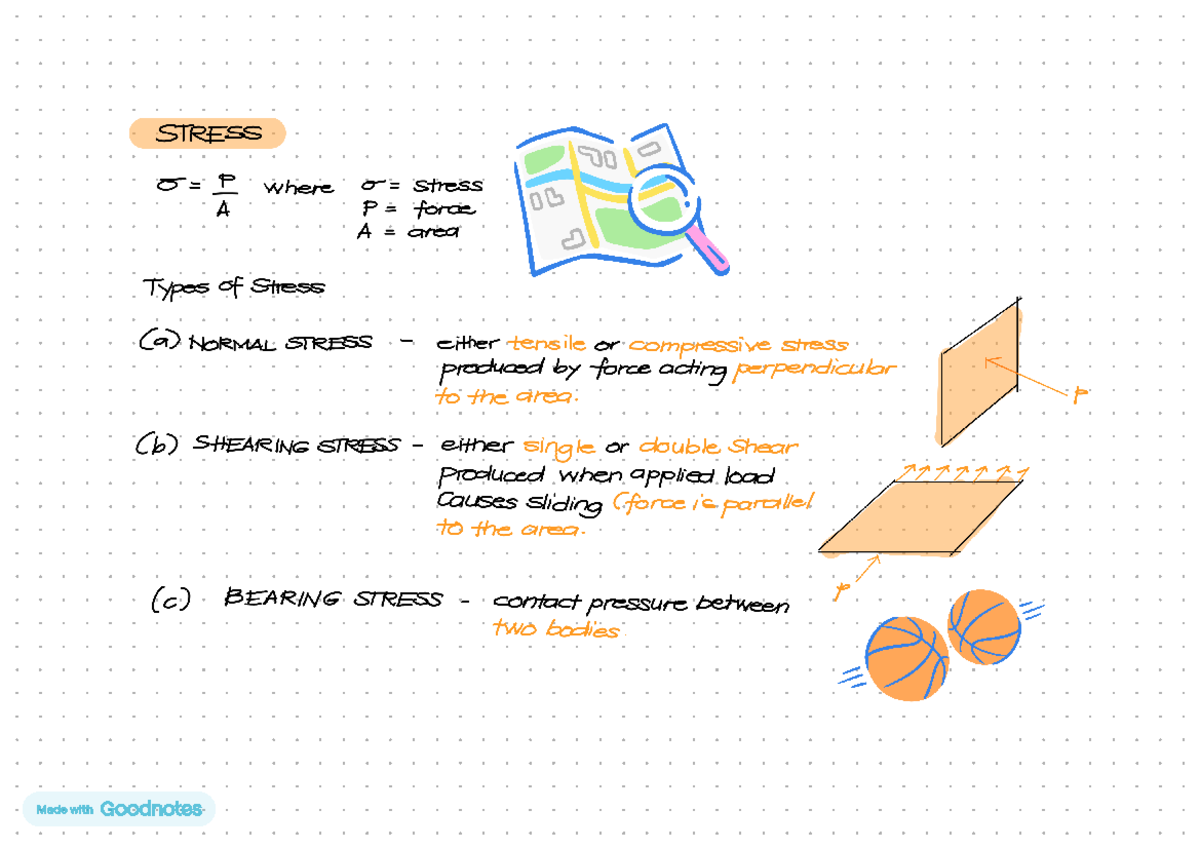 STRESS
σ = P/A where σ = stress
P = force
A = area
Types of Stress
(a) NORMAL STRESS - either tensile or compressive stress
produced by force acting perpendicular
to the area.
P
(b) SHEARING STRESS - either single or double shear
produced when applied load
causes sliding (force is parallel
to the area.
P
(c) BEARING STRESS - contact pressure between
two bodies
Made with Goodnotes